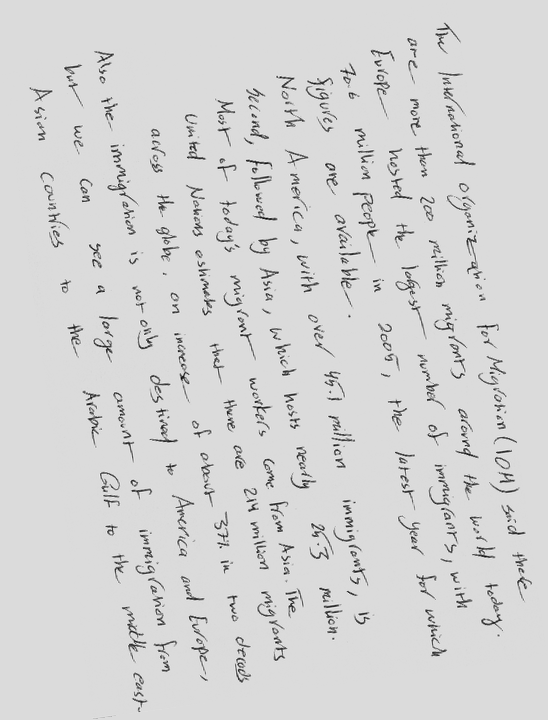 The International organization for Migration (IOM) said there
are more than 200 million migrants around the world today.
Europe hosted the largest number of immigrants, with
70.6 million people in 2005, the latest year for which
figures are available.
North America, with over 45.1 million immigrants, is
second, followed by Asia, which hosts nearly 25.3 million.
Most of today's migrant workers come from Asia. The
United Nations estimates that there are 214 million migrants
across the globe, an increase of about 37% in two decads
Also the immigration is not only destined to America and Europe,
but we can see a large amount of immigration from
Asian countries to the Arabic Gulf to the middle east.